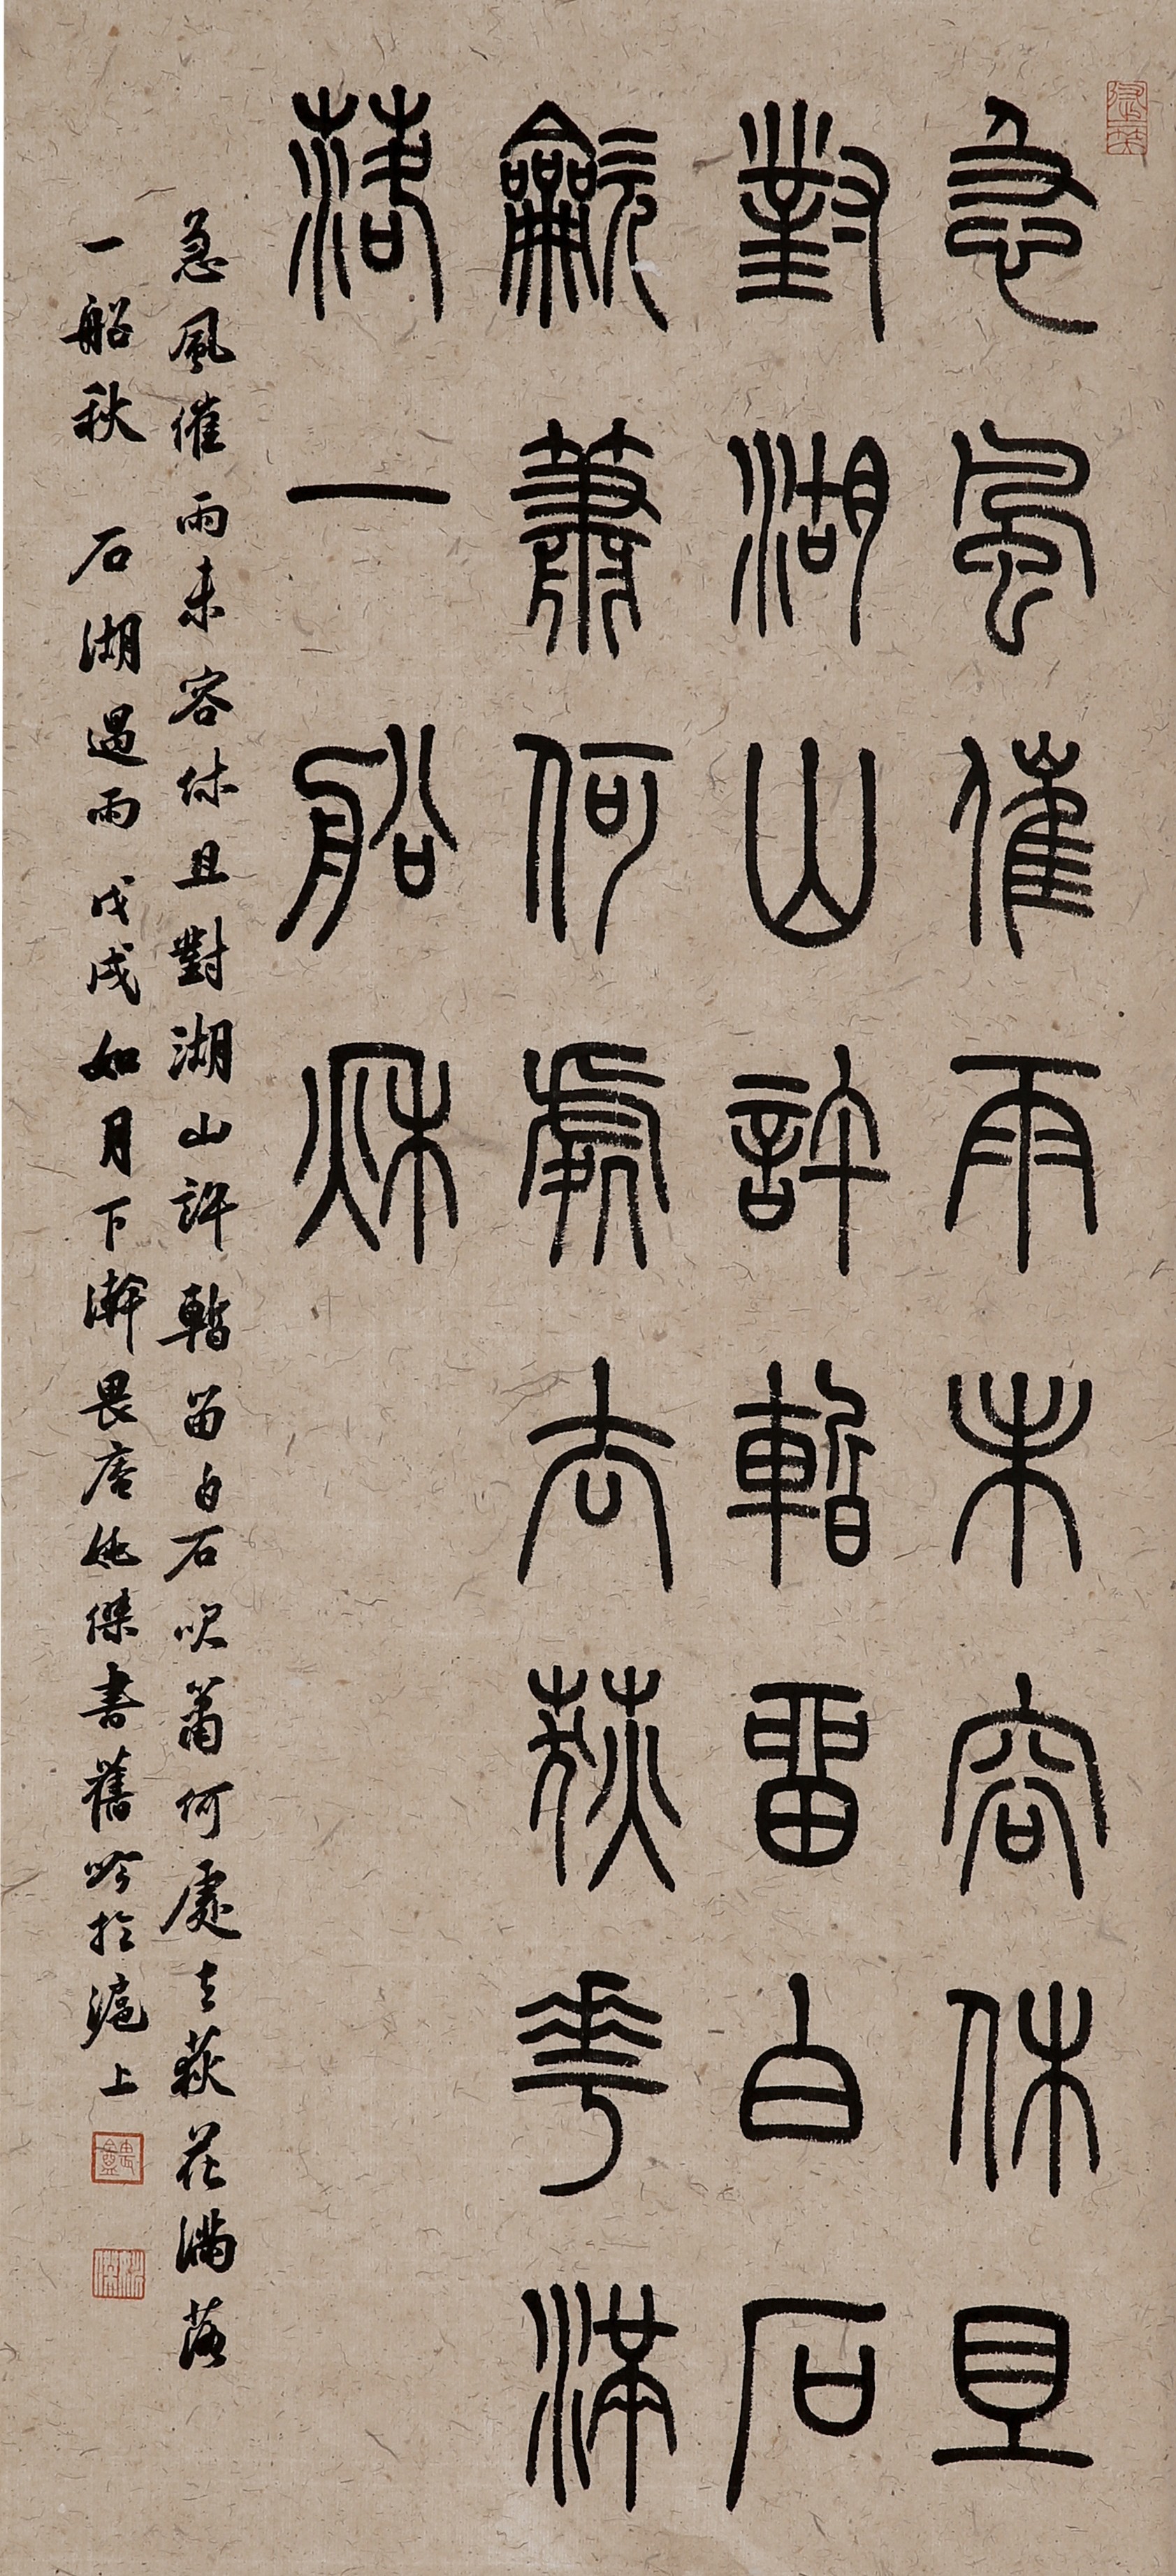 急風催雨未容休且
對湖山許暫留白石
龡簫何處去荻華滿
落一船秋
急風催雨未容休且對湖山許暫留白石吹簫何處去荻花滿落
一船秋 石湖遇雨 戊戌如月下澣畏庵姚傑書舊吟於滬上